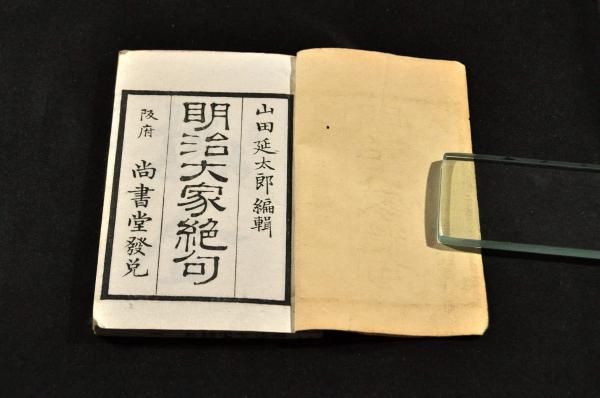 山田延太郎編輯
明治大家絶句
阪府 尚書堂發兌